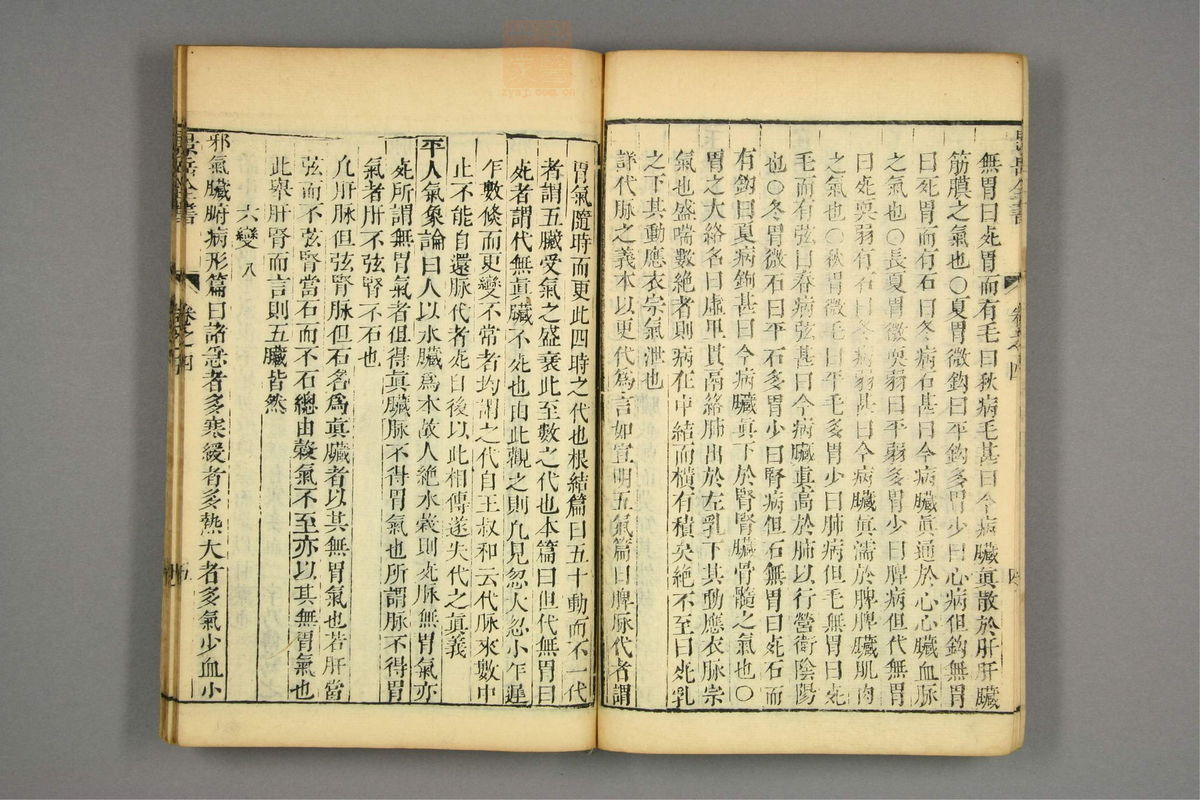 無胃曰死胃而有毛曰秋病毛甚曰今病臟真散於肝肝臟
筋膜之氣也○夏胃微鈎曰平鈎多胃少曰心病但鈎無胃
曰死胃而有石曰冬病石甚曰今病臟真通於心心臟血脉
之氣也○長夏胃微耎弱曰平弱多胃少曰脾病但代無胃
曰死耎弱有石曰冬病弱甚曰今病臟真濡於脾脾臟肌肉
之氣也○秋胃微毛曰平毛多胃少曰肺病但毛無胃曰死
毛而有弦曰春病弦甚曰今病臟真高於肺以行營衛陰陽
也○冬胃微石曰平石多胃少曰腎病但石無胃曰死石而
有鈎曰夏病鈎甚曰今病臟真下於腎腎臟骨髓之氣也○
胃之大絡名曰虛里貫鬲絡肺出於左乳下其動應衣脉宗
氣也盛喘數絶者則病在中結而橫有積矣絶不至曰死乳
之下其動應衣宗氣泄也
詳代脉之義本以更代爲言如宣明五氣篇曰脾脉代者謂
景岳全書
卷之四
胃氣隨時而更此四時之代也根結篇曰五十動而不一代
者謂五臟受氣之盛衰此至數之代也本篇曰但代無胃曰
死者謂代無真臟不死也由此觀之則凡見忽大忽小乍遲
乍數倐而更變不常者均謂之代自王叔和云代脉來數中
止不能自還脉代者死自後以此相傳遂失代之真義
平人氣象論曰人以水臟爲本故人絶水穀則死脉無胃氣亦
死所謂無胃氣者但得真臟脉不得胃氣也所謂脉不得胃
氣者肝不弦腎不石也
凡肝脉但弦腎脉但石名爲真臟者以其無胃氣也若肝當
弦而不弦腎當石而不石總由穀氣不至亦以其無胃氣也
此舉肝腎而言則五臟皆然
六變 八
邪氣臟腑病形篇曰諸急者多寒緩者多熱大者多氣少血小
景岳全書
卷之四
五